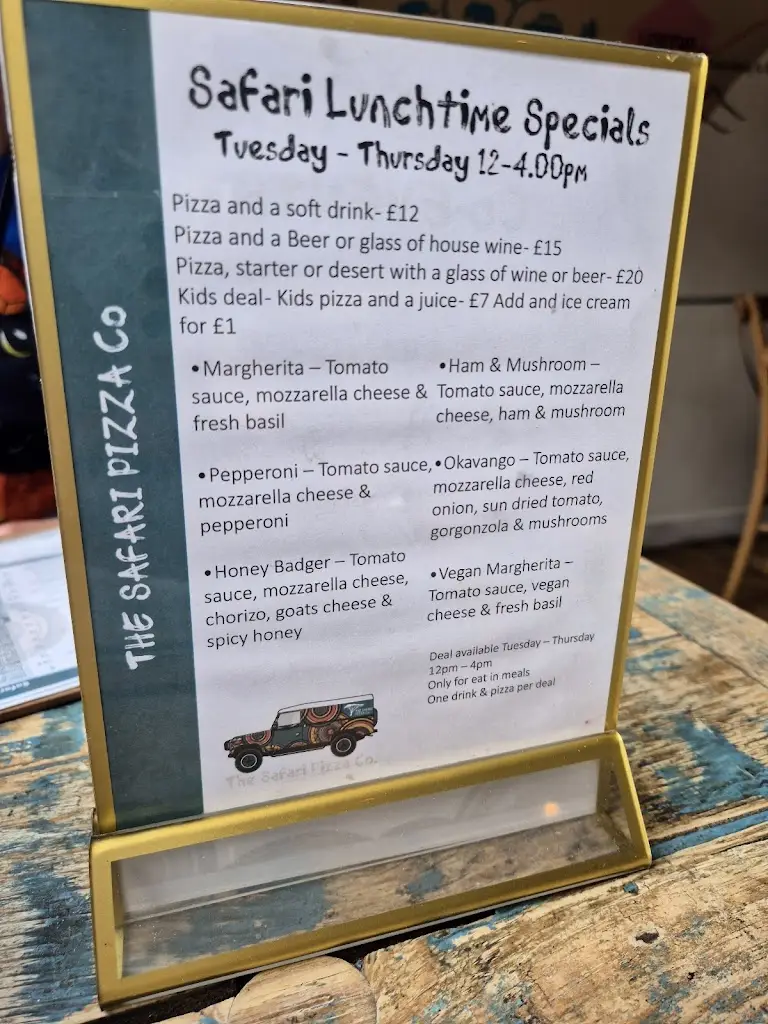 Safari Lunchtime Specials
Tuesday - Thursday 12-4.00pm
Pizza and a soft drink- £12
Pizza and a Beer or glass of house wine- £15
Pizza, starter or desert with a glass of wine or beer- £20
Kids deal- Kids pizza and a juice- £7 Add and ice cream
for £1
•Margherita – Tomato
sauce, mozzarella cheese &
fresh basil
•Pepperoni – Tomato sauce,
mozzarella cheese &
pepperoni
•Honey Badger – Tomato
sauce, mozzarella cheese,
chorizo, goats cheese &
spicy honey
•Ham & Mushroom –
Tomato sauce, mozzarella
cheese, ham & mushroom
•Okavango – Tomato sauce,
mozzarella cheese, red
onion, sun dried tomato,
gorgonzola & mushrooms
•Vegan Margherita –
Tomato sauce, vegan
cheese & fresh basil
Deal available Tuesday – Thursday
12pm – 4pm
Only for eat in meals
One drink & pizza per deal
The Safari Pizza Co.
THE SAFARI PIZZA Co